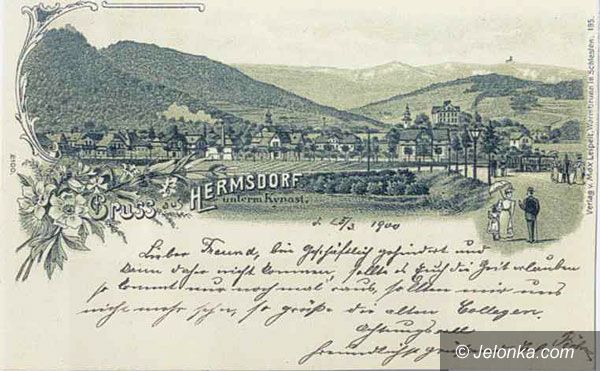 Gruss aus
HERMSDORF
unterm Kynast.
Verlag v. Max Leipelt, Warmbrunn in Schlesien. 195.
d. 25/3 1900
Lieber Freund, bin Geschäftlich gehindert und
kann daher nicht kommen, sollte es Euch die Zeit erlauben
so kommt nur noch mal raus, sollten wir uns
nicht mehr sehn, so grüße die alten Collegen.
Achtungsvoll
freundlichst
© Jelonka.com